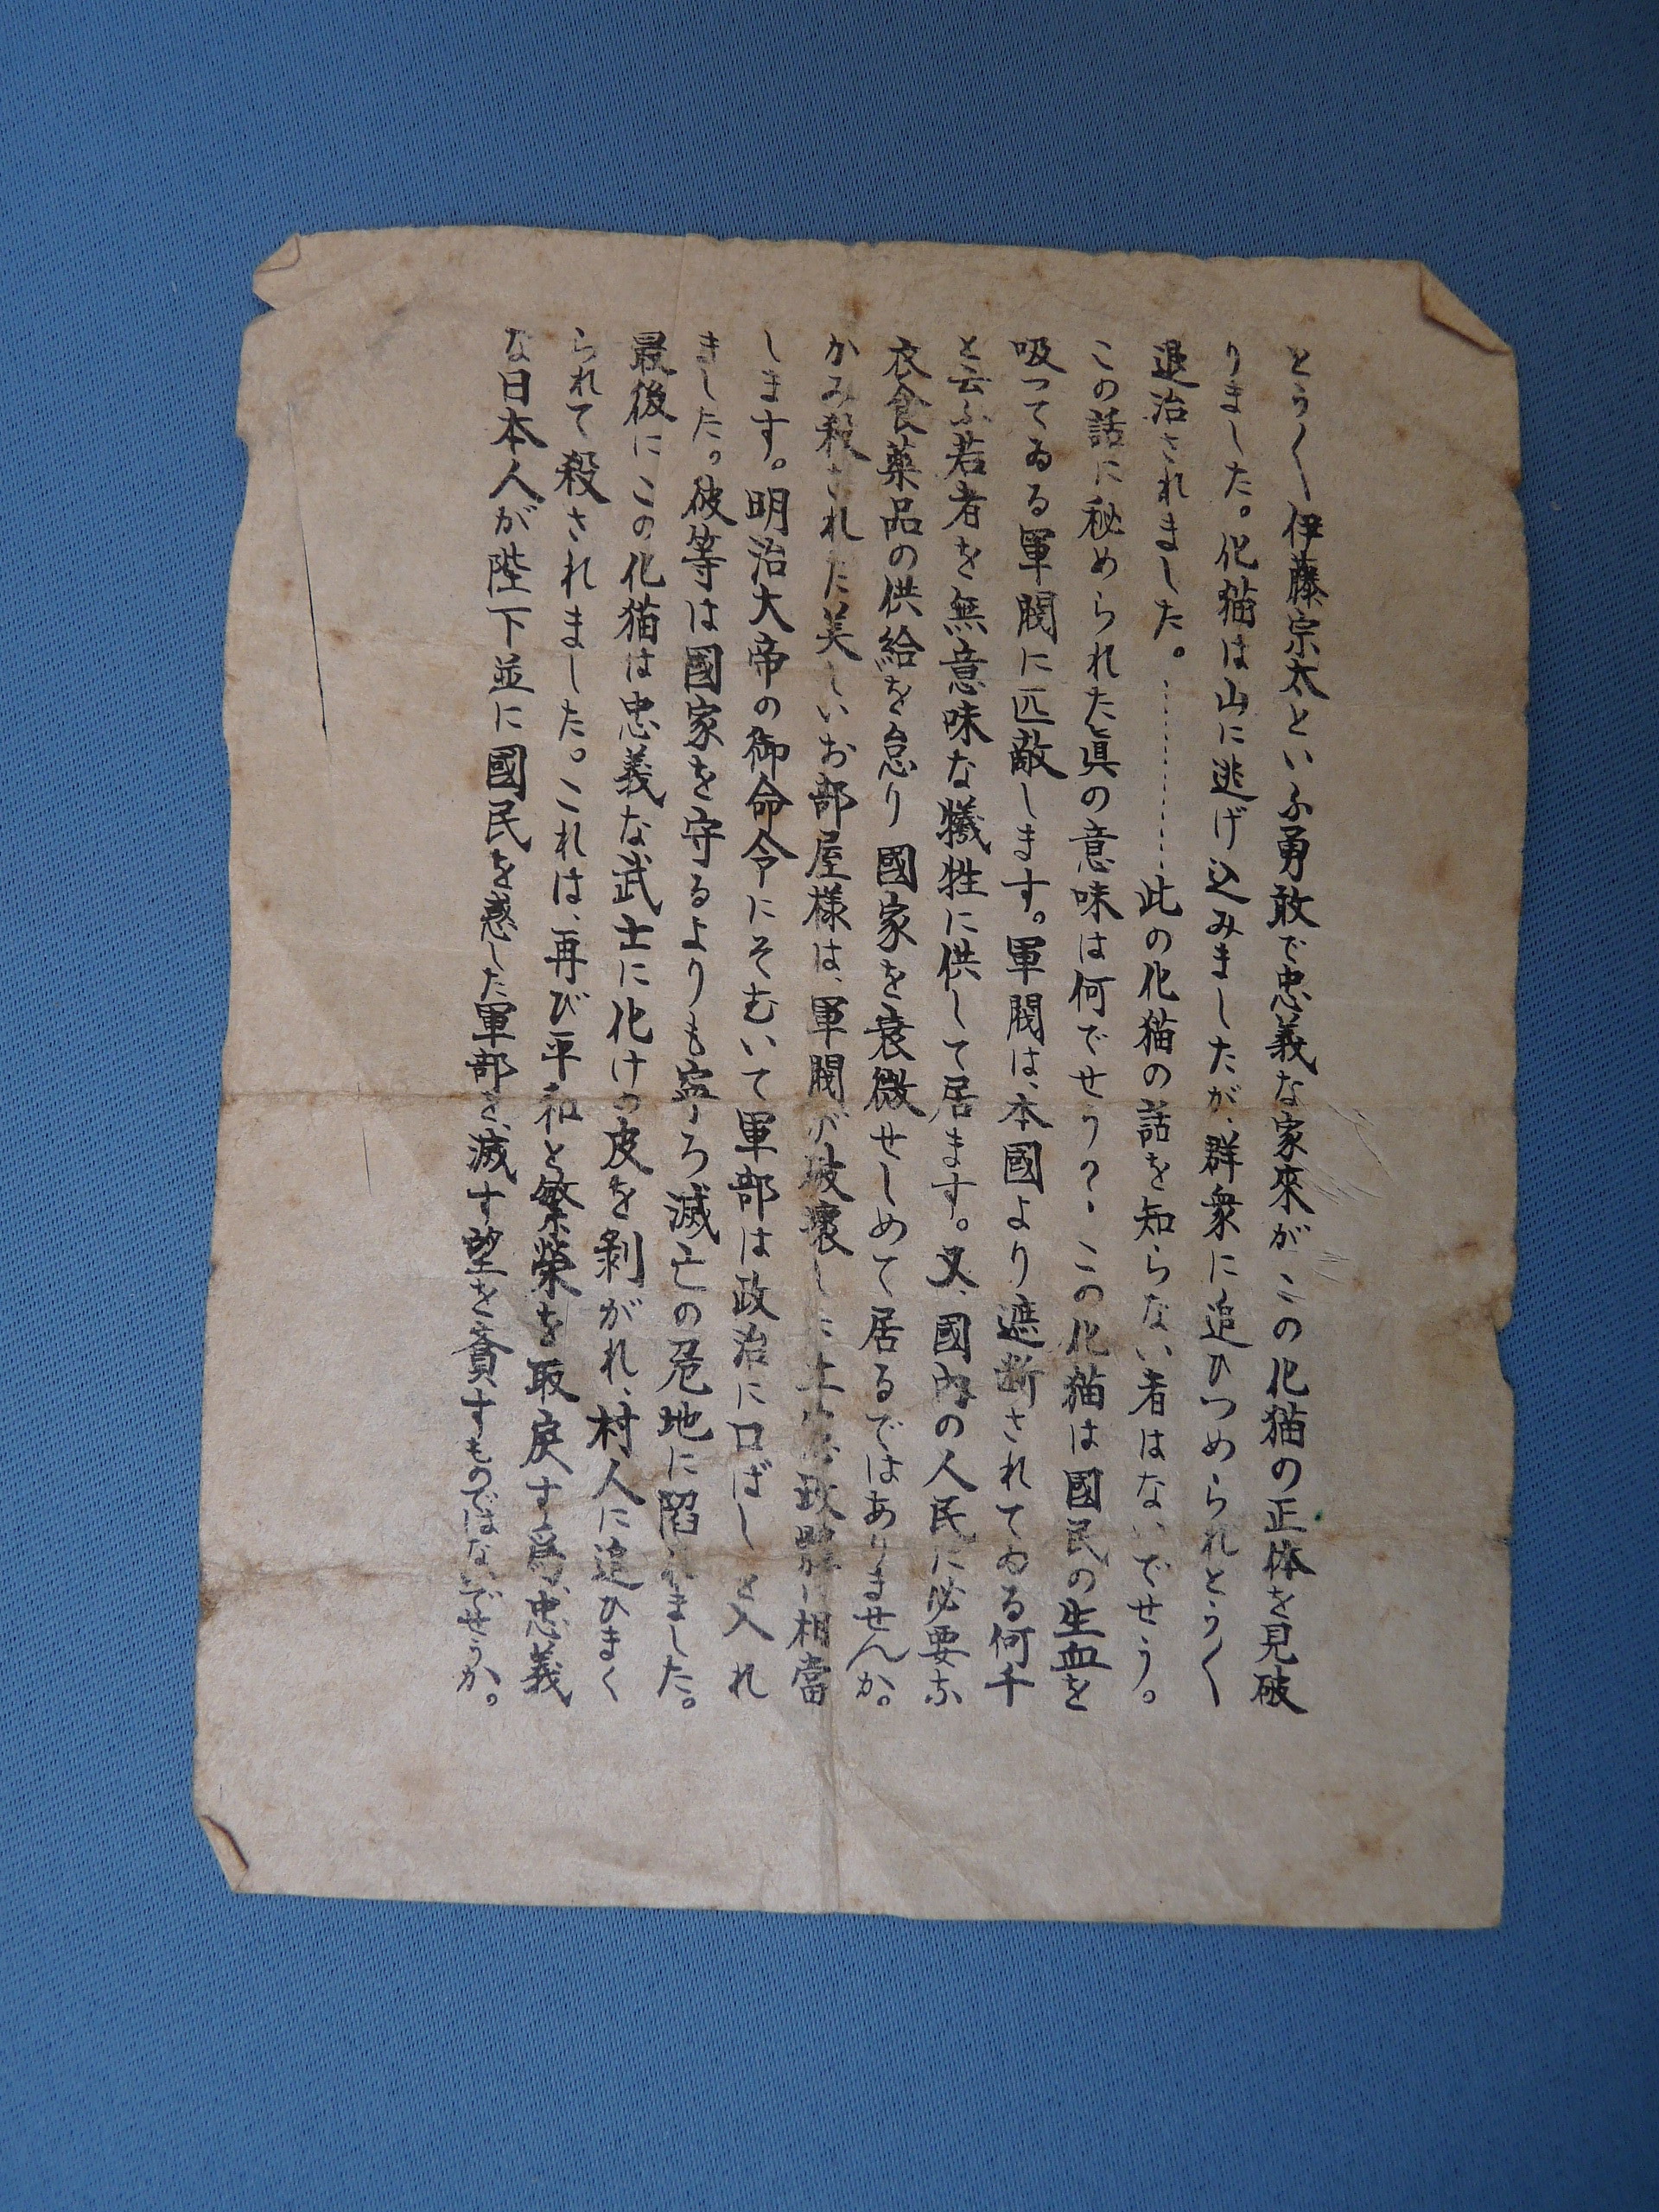 とう〱伊藤宗太といふ勇敢で忠義な家來がこの化猫の正体を見破
りました。化猫は山に逃げ込みましたが、群衆に追ひつめられとう〱
退治されました。…………此の化猫の話を知らない者はないでせう。
この話に秘められた眞の意味は何でせう?.この化猫は國民の生血を
吸つてゐる軍閥に匹敵します。軍閥は、本國より遮断されてゐる何千
と云ふ若者を無意味な犠牲に供して居ます。又、國内の人民に必要な
衣食薬品の供給を怠り國家を衰微せしめて居るではありませんか。
かみ殺された美しいお部屋様は、軍閥が破壊した 政 に相當
します。明治大帝の御命令にそむいて軍部は政治に口ばしを入れ
ました。彼等は國家を守るよりも寧ろ滅亡の危地に陷れました。
最後にこの化猫は忠義な武士に化けの皮を剝がれ、村人に追ひまく
られて殺されました。これは、再び平和と繁榮を取戻す爲、忠義
な日本人が陛下並に國民を惑した軍部を、滅す望を齎すものではないでせうか。